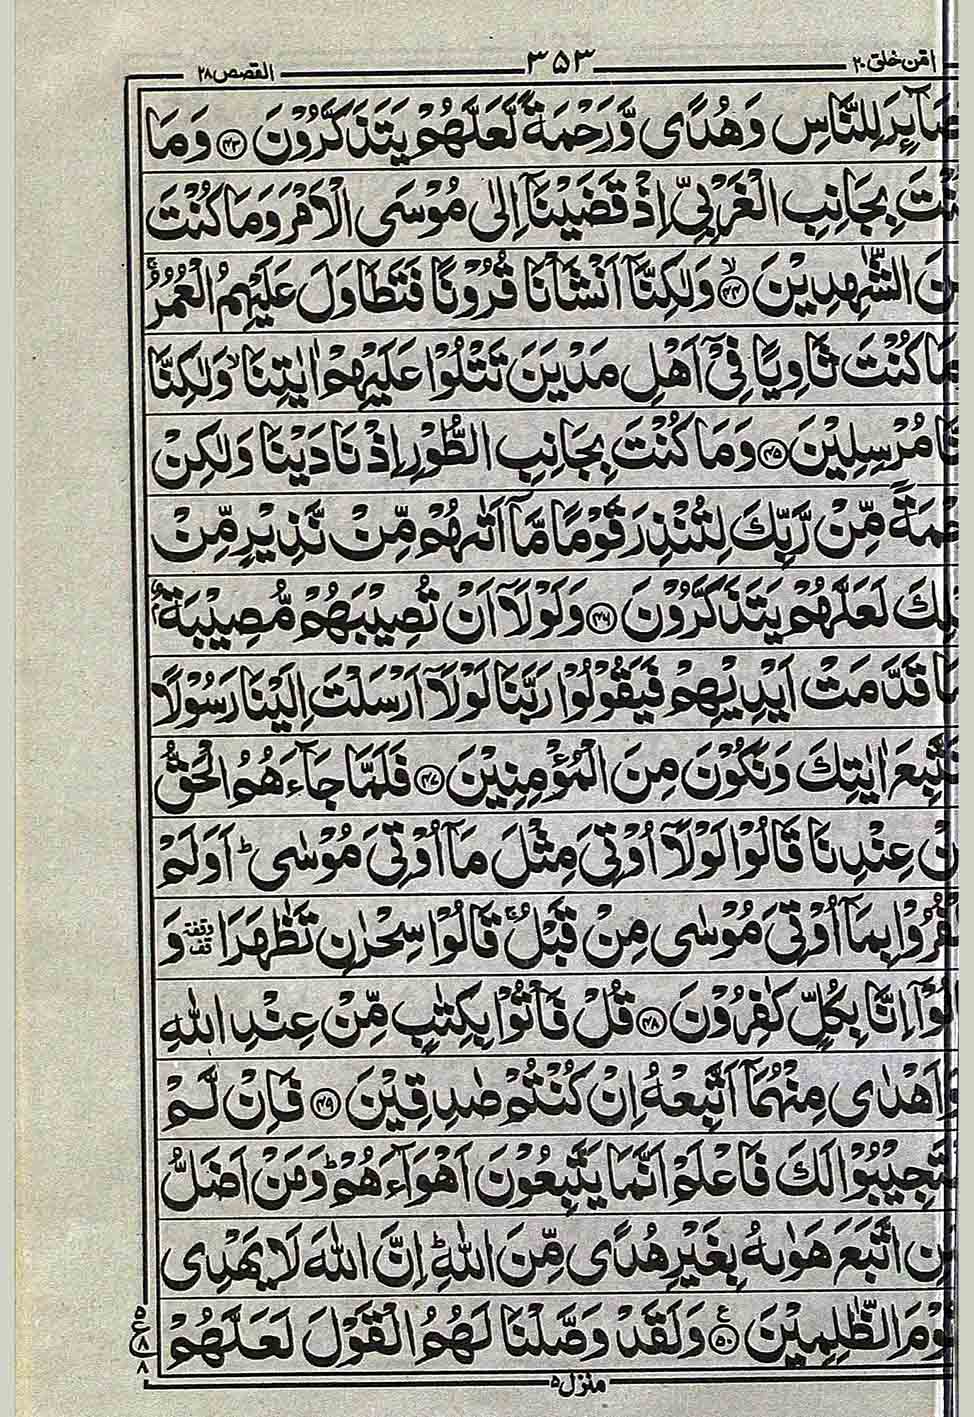 امّن خلق ۲۰ ۳۵۳ القصص ۲۸
صَآئِرَ لِلنَّاسِ وَهُدًى وَّرَحْمَةً لَّعَلَّهُمْ يَتَذَكَّرُوْنَ ﴿۴۳﴾ وَمَا
نْتَ بِجَانِبِ الْغَرْبِيِّ اِذْ قَضَيْنَآ اِلٰى مُوْسَى الْاَمْرَ وَمَا كُنْتَ
نَ الشّٰهِدِيْنَ ﴿۴۴﴾ۙ وَلٰكِنَّآ اَنْشَاْنَا قُرُوْنًا فَتَطَاوَلَ عَلَيْهِمُ الْعُمُرُ ۚ
مَا كُنْتَ ثَاوِيًا فِيْٓ اَهْلِ مَدْيَنَ تَتْلُوْا عَلَيْهِمْ اٰيٰتِنَا ۙ وَلٰكِنَّا
نَّا مُرْسِلِيْنَ ﴿۴۵﴾ وَمَا كُنْتَ بِجَانِبِ الطُّوْرِ اِذْ نَادَيْنَا وَلٰكِنْ
حْمَةً مِّنْ رَّبِّكَ لِتُنْذِرَ قَوْمًا مَّآ اَتٰىهُمْ مِّنْ نَّذِيْرٍ مِّنْ
بْلِكَ لَعَلَّهُمْ يَتَذَكَّرُوْنَ ﴿۴۶﴾ وَلَوْلَآ اَنْ تُصِيْبَهُمْ مُّصِيْبَةٌۢ
مَا قَدَّمَتْ اَيْدِيْهِمْ فَيَقُوْلُوْا رَبَّنَا لَوْلَآ اَرْسَلْتَ اِلَيْنَا رَسُوْلًا
نَتَّبِعَ اٰيٰتِكَ وَنَكُوْنَ مِنَ الْمُؤْمِنِيْنَ ﴿۴۷﴾ فَلَمَّا جَآءَهُمُ الْحَقُّ
نْ عِنْدِنَا قَالُوْا لَوْلَآ اُوْتِيَ مِثْلَ مَآ اُوْتِيَ مُوْسٰى ؕ اَوَلَمْ
فُرُوْا بِمَآ اُوْتِيَ مُوْسٰى مِنْ قَبْلُ ۚ قَالُوْا سِحْرٰنِ تَظٰهَرَا وقفة وَ
الُوْٓا اِنَّا بِكُلٍّ كٰفِرُوْنَ ﴿۴۸﴾ قُلْ فَاْتُوْا بِكِتٰبٍ مِّنْ عِنْدِ اللّٰهِ
وَ اَهْدٰى مِنْهُمَآ اَتَّبِعْهُ اِنْ كُنْتُمْ صٰدِقِيْنَ ﴿۴۹﴾ فَاِنْ لَّمْ
تَجِيْبُوْا لَكَ فَاعْلَمْ اَنَّمَا يَتَّبِعُوْنَ اَهْوَآءَهُمْ ؕ وَمَنْ اَضَلُّ
نِ اتَّبَعَ هَوٰىهُ بِغَيْرِ هُدًى مِّنَ اللّٰهِ ؕ اِنَّ اللّٰهَ لَا يَهْدِى
وْمَ الظّٰلِمِيْنَ ﴿۵۰﴾ وَلَقَدْ وَصَّلْنَا لَهُمُ الْقَوْلَ لَعَلَّهُمْ
۵ ع ۸ ۸
منزل ۵